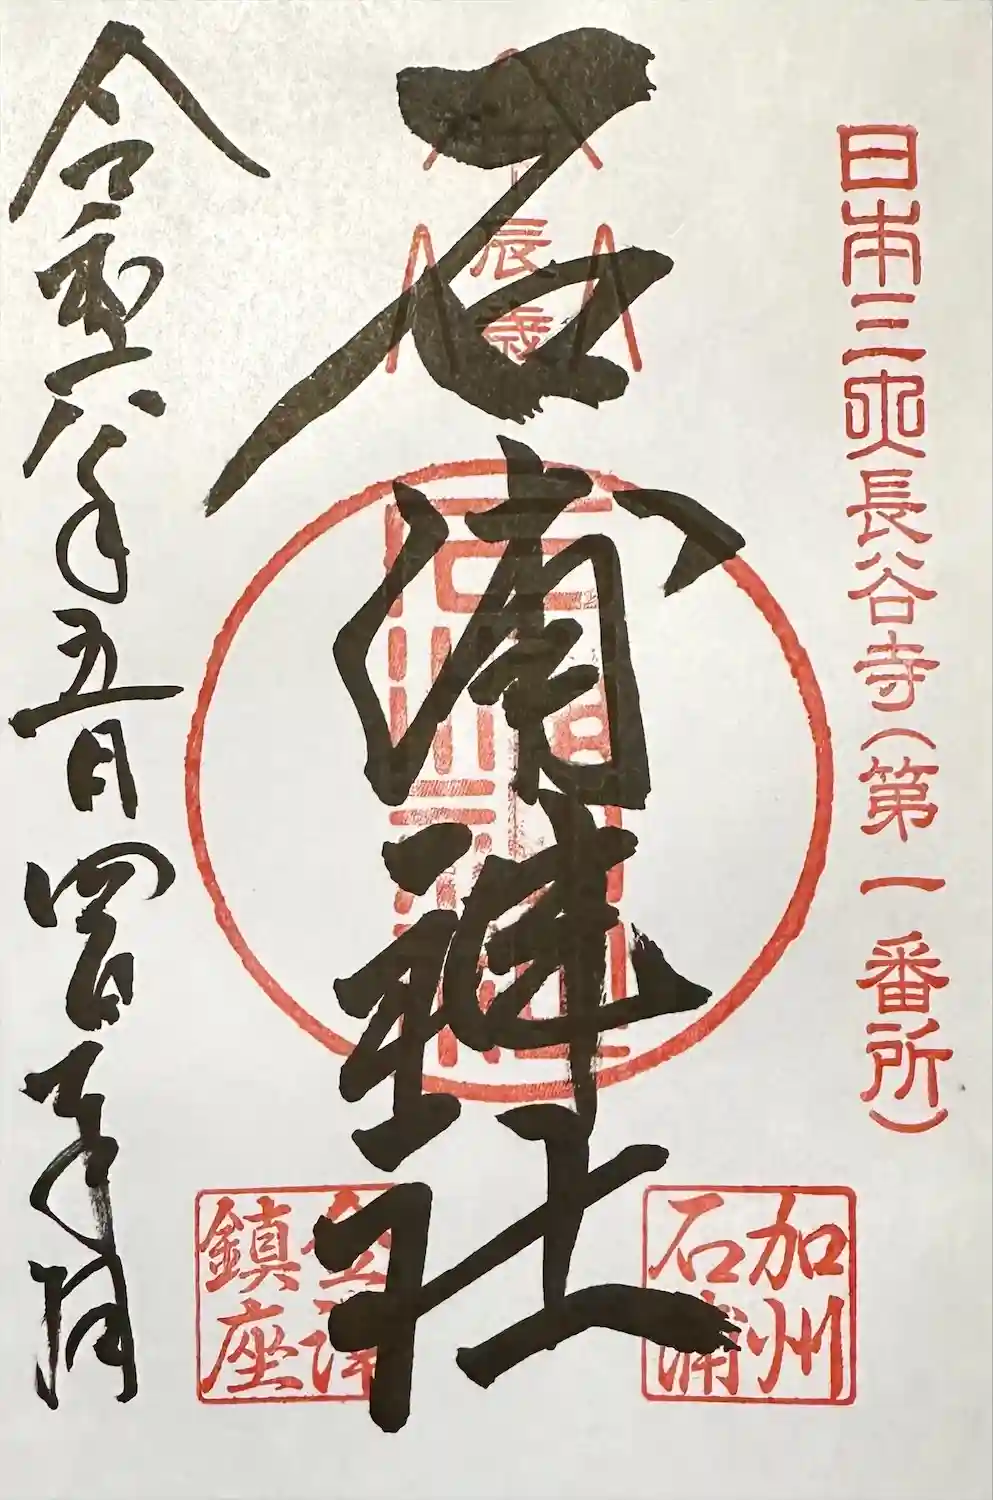 日本三大長谷寺(第一番所)
加州
石浦
辰歳
石浦神社
金澤
鎮座
令和六年五月四日奉拝